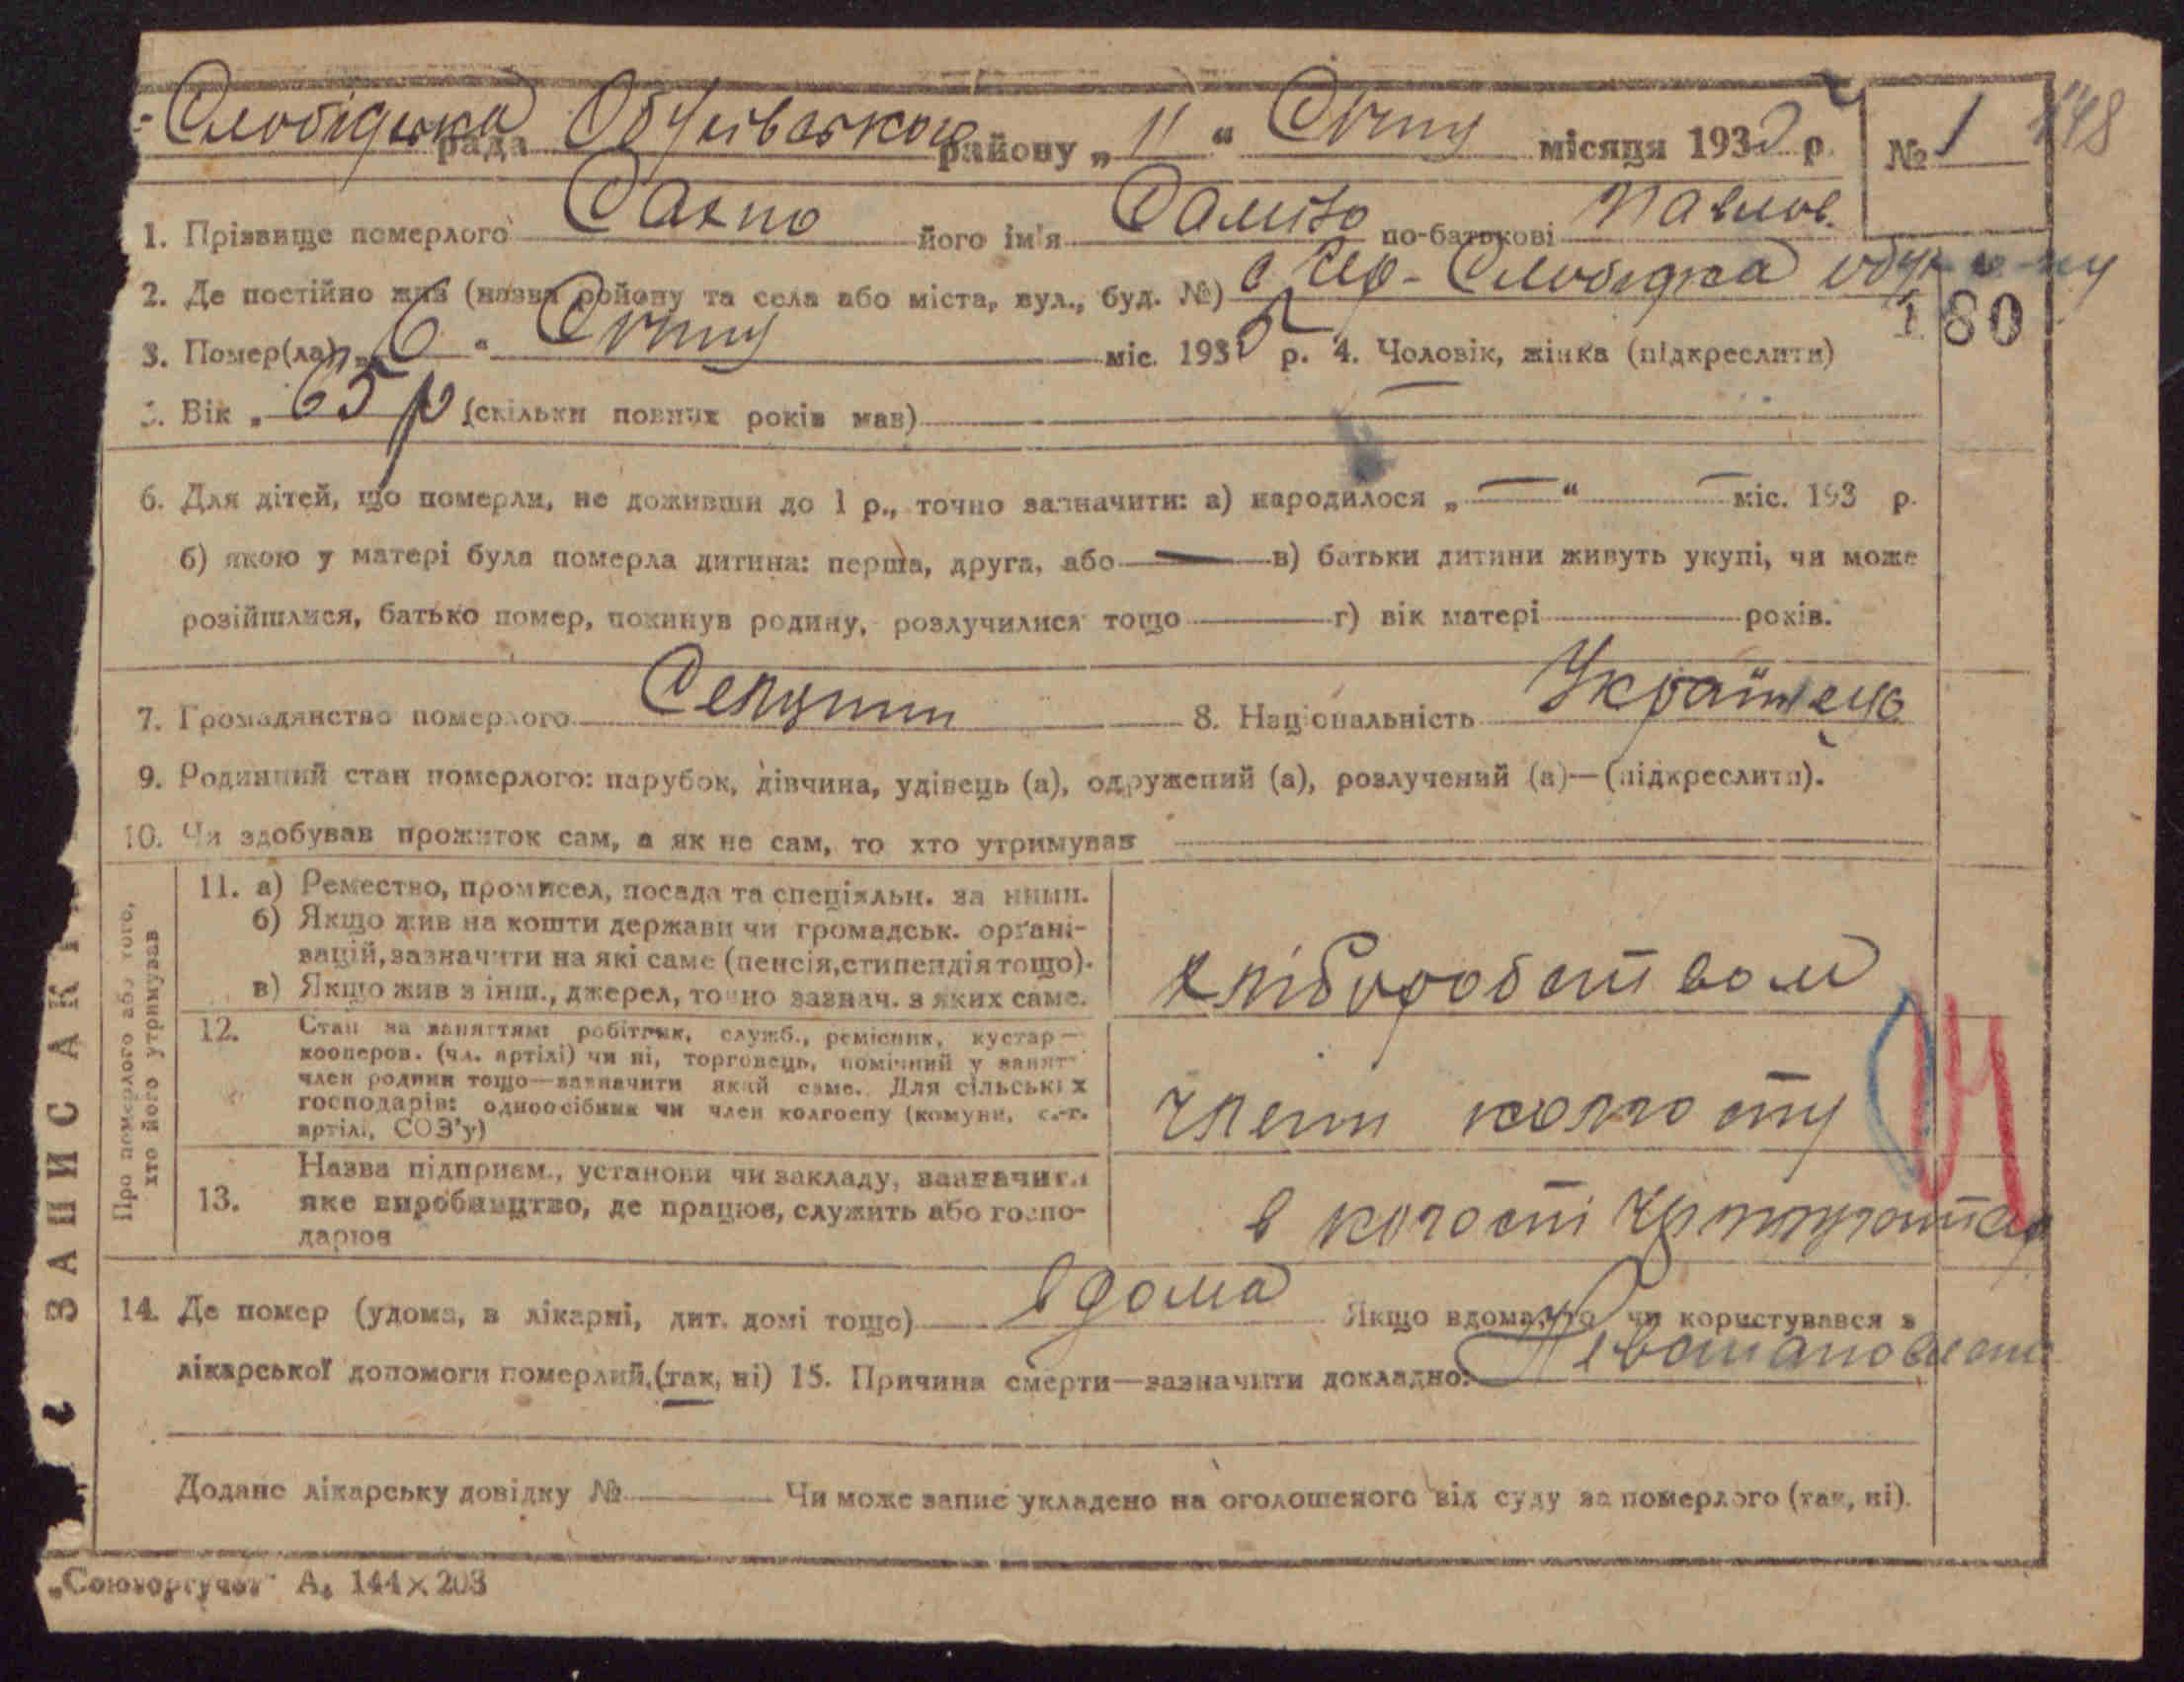 Слобідська рада Обухівського району „11“ Січня місяця 1932 р. № 1 148
1. Прізвище померлого Сахно його ім'я по-батькові Павлов.
2. Де постійно жив (назва району та села або міста, вул., буд. №) с Слобідка
180
3. Помер(ла) „6“ Січня міс. 193 р. 4. Чоловік, жінка (підкреслити)
5. Вік „65 р (скільки повних років мав)
6. Для дітей, що померли, не доживши до 1 р., точно зазначити: а) народилося „—“ — міс. 193 р.
б) якою у матері була померла дитина: перша, друга, або — в) батьки дитини живуть укупі, чи може
розійшлися, батько помер, покинув родину, розлучилися тощо г) вік матері років.
7. Громадянство померлого 8. Національність Українець
9. Родинний стан померлого: парубок, дівчина, удівець (а), одружений (а), розлучений (а)—(підкреслити).
10. Чи здобував прожиток сам, а як не сам, то хто утримував
ЗАПИС АКТ
Про померлого або того,
хто його утримував
11. а) Ремество, промисел, посада та спеціяльн. за ними.
б) Якщо жив на кошти держави чи громадськ. органі-
зацій, зазначити на які саме (пенсія, стипендія тощо).
в) Якщо жив з інш., джерел, точно зазнач. з яких саме.
хліборобством
12. Стан за заняттям: робітник, служб., ремісник, кустар —
кооперов. (чл. артілі) чи ні, торговець, помічний у занятт
член родини тощо—зазначити який саме. Для сільських
господарів: одноосібник чи член колгоспу (комуни, с.-г.
артілі, СОЗ'у)
член колгоспу
13. Назва підприєм., установи чи закладу, зазначити
яке виробництво, де працюв, служить або госпо-
дарюв
в
14. Де помер (удома, в лікарні, дит. домі тощо) вдома Якщо вдома, то чи користувався з
лікарської допомоги померлий, (так, ні) 15. Причина смерти—зазначити докладно:
Додано лікарську довідку № Чи може запис укладено на оголошеного від суду за померлого (так, ні).
„Союзоргучет“ А₅ 144×203